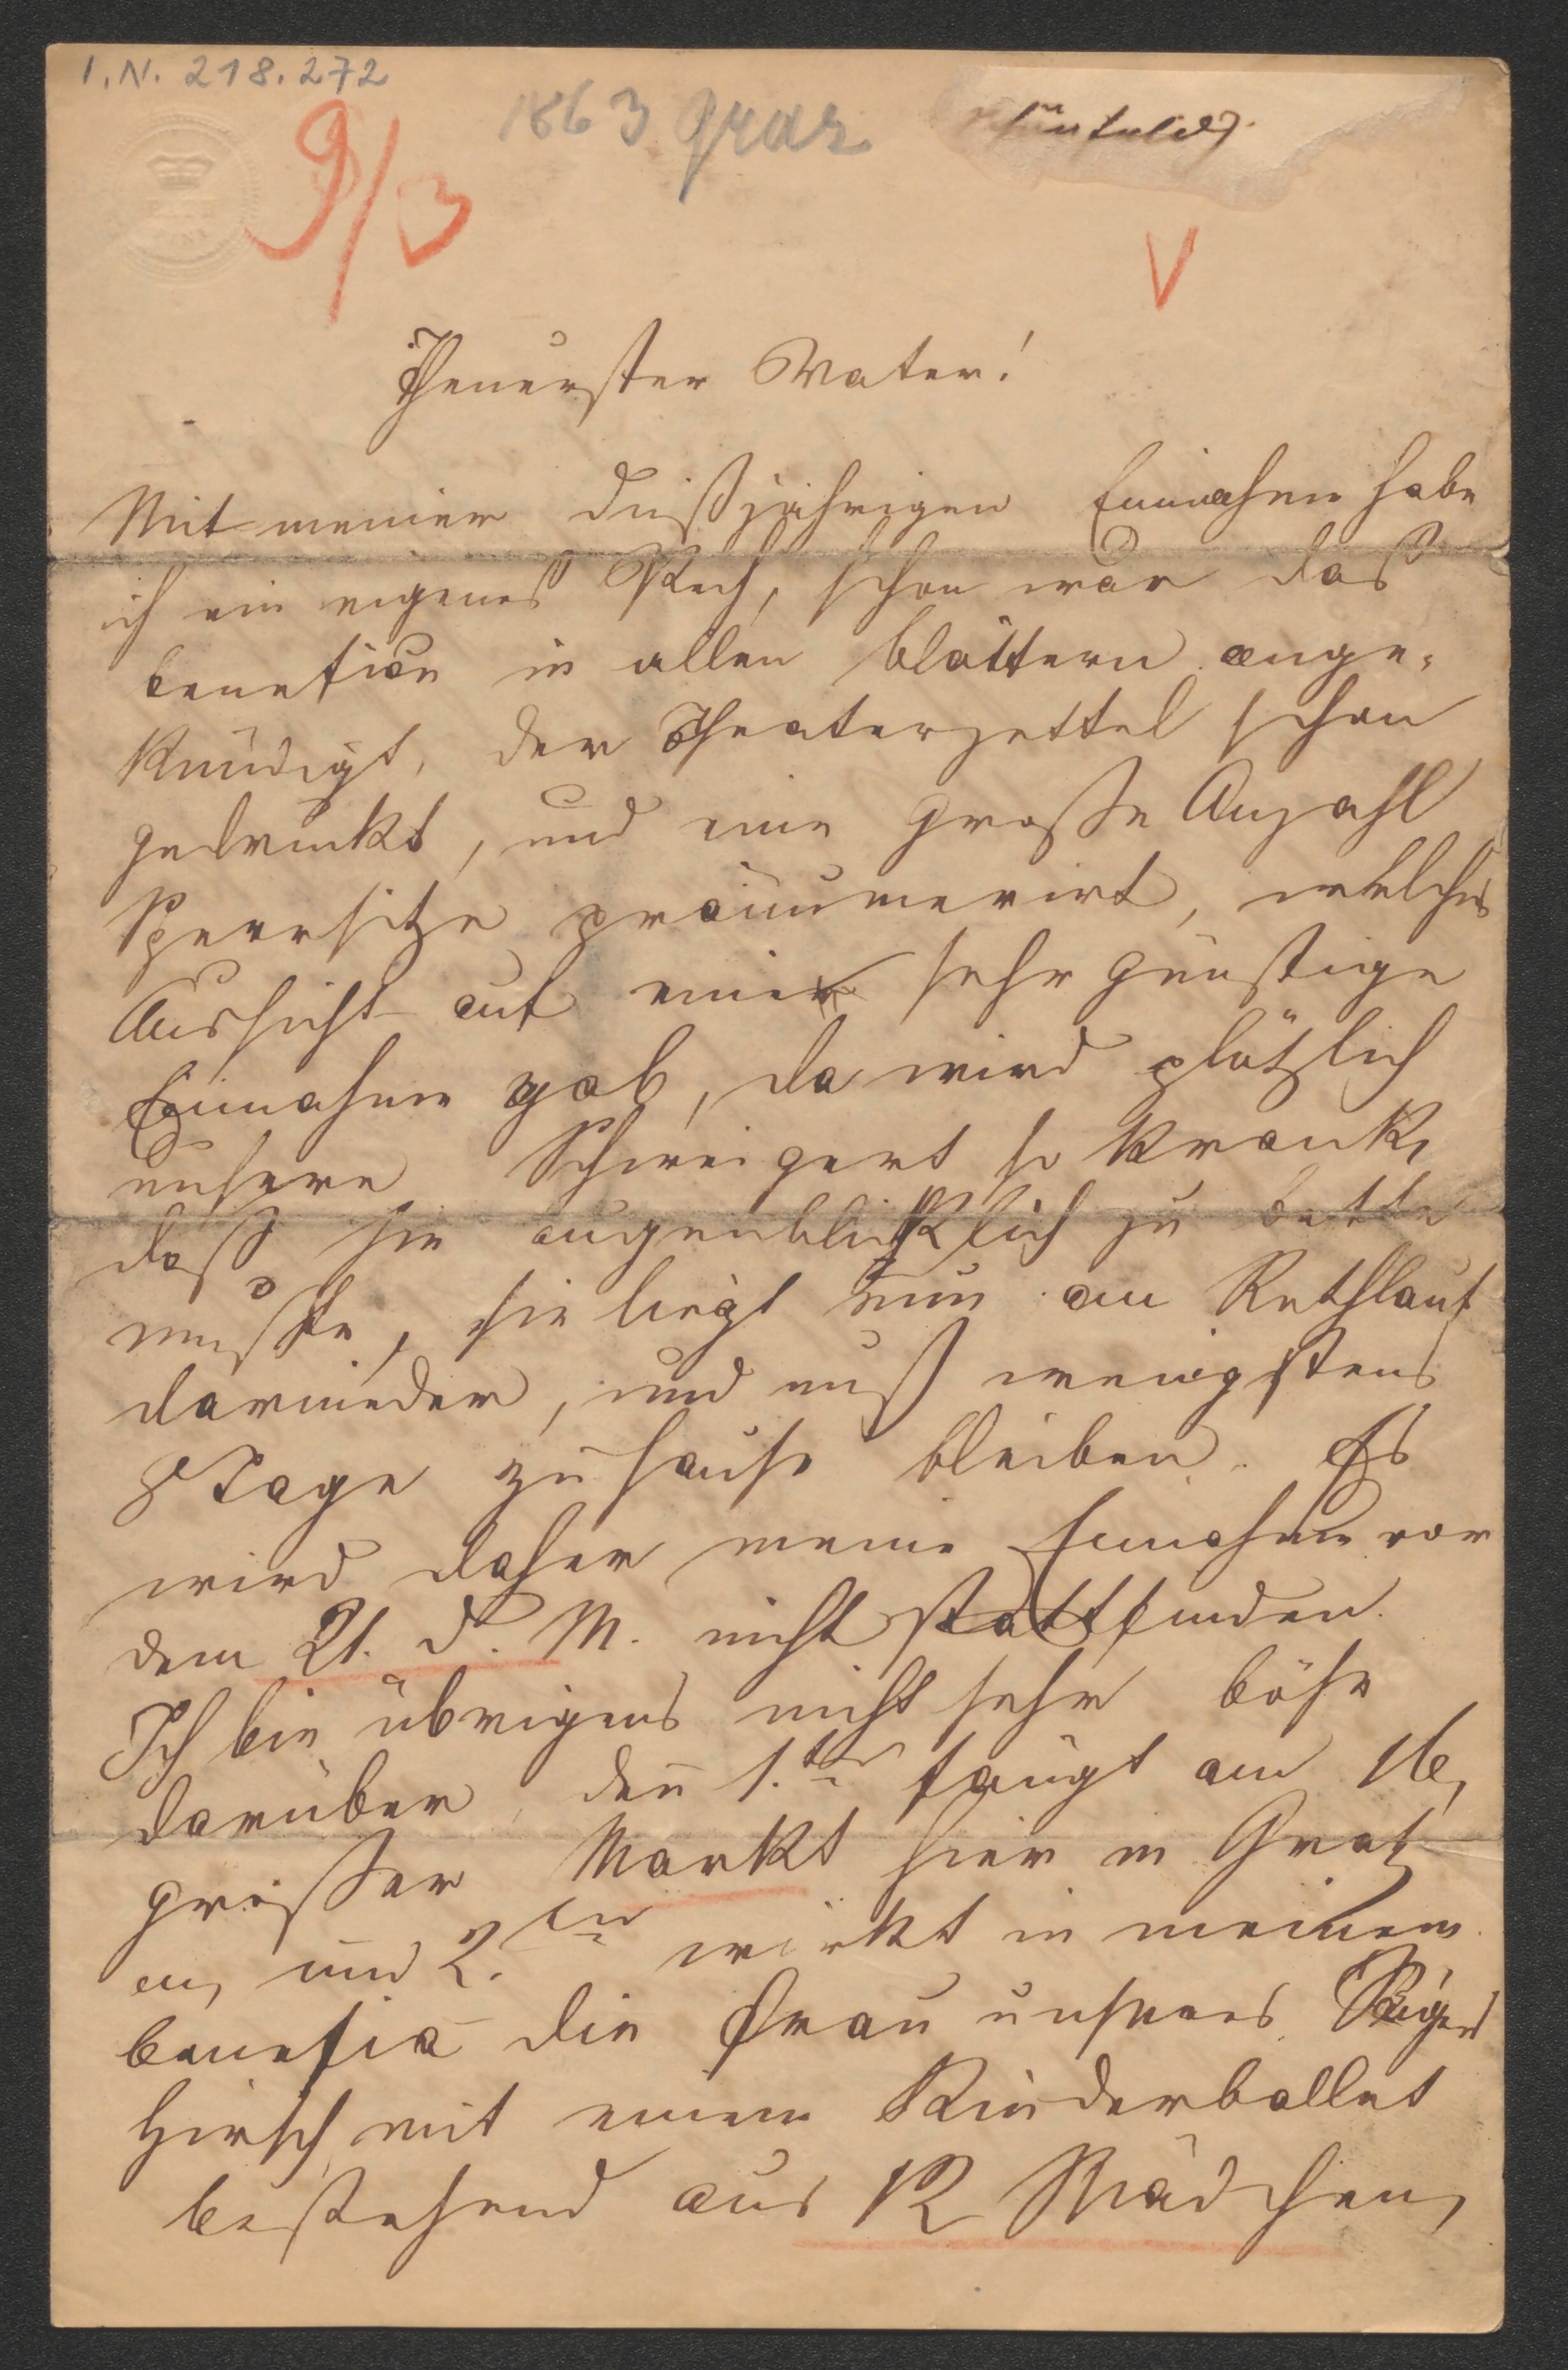 I.N. 218.272
9/3
1863 Graz
V
Theuerster Vater!
Mit meiner dießjährigen Einnahme habe
ich ein eigenes Pech, schon war das
benefice in allen Blättern ange-
kündigt, der Theaterzettel schon
gedruckt, und eine große Anzahl
Sperrsitze pränumerirt, welches
Aussicht auf eine sehr günstige
Einnahme gab, da wird plötzlich
unsere Schweigert so krank,
daß sie augenblicklich zu bette
mußte, sie liegt nun am Rothlauf
darnieder, und muß wenigstens
8 Tage zu Hause bleiben. Es
wird daher meine Einnahme vor
dem 21. d. M. nicht stattfinden.
Ich bin übrigens nicht sehr böse
darüber, den 1.tens fängt am 16,
großer Markt hier in Gratz
an, und 2.tens wirkt in meinem
benefice die Frau unseres
Hirsch mit einem Kinderballet
bestehend aus 12 Mädchen,